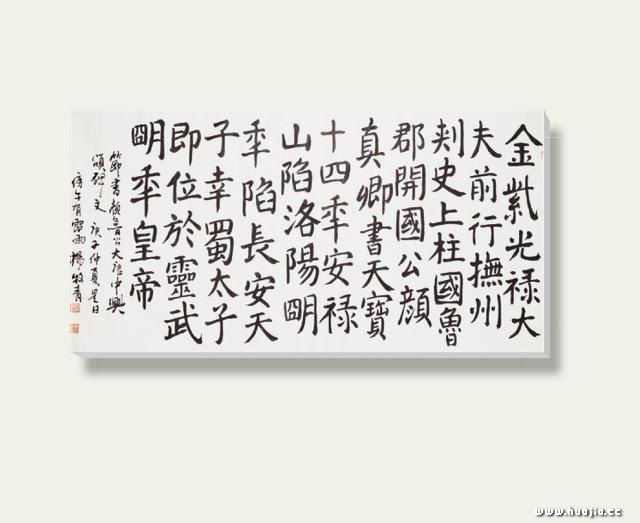 金紫光禄大
夫前行撫州
刾史上柱國魯
郡開國公顔
真卿書天寶
十四秊安禄
山陷洛陽眀
秊陷長安天
子幸蜀太子
即位於靈武
眀秊皇帝
節書顔魯公大唐中興
頌碑文 庚子仲夏是日
傍午有雷雨楊牧青
www.huajia.cc